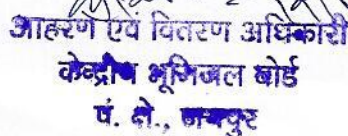 आहरण एवं वितरण अधिकारी
केन्द्रीय भूमिजल बोर्ड
पं. क्षे., जयपुर